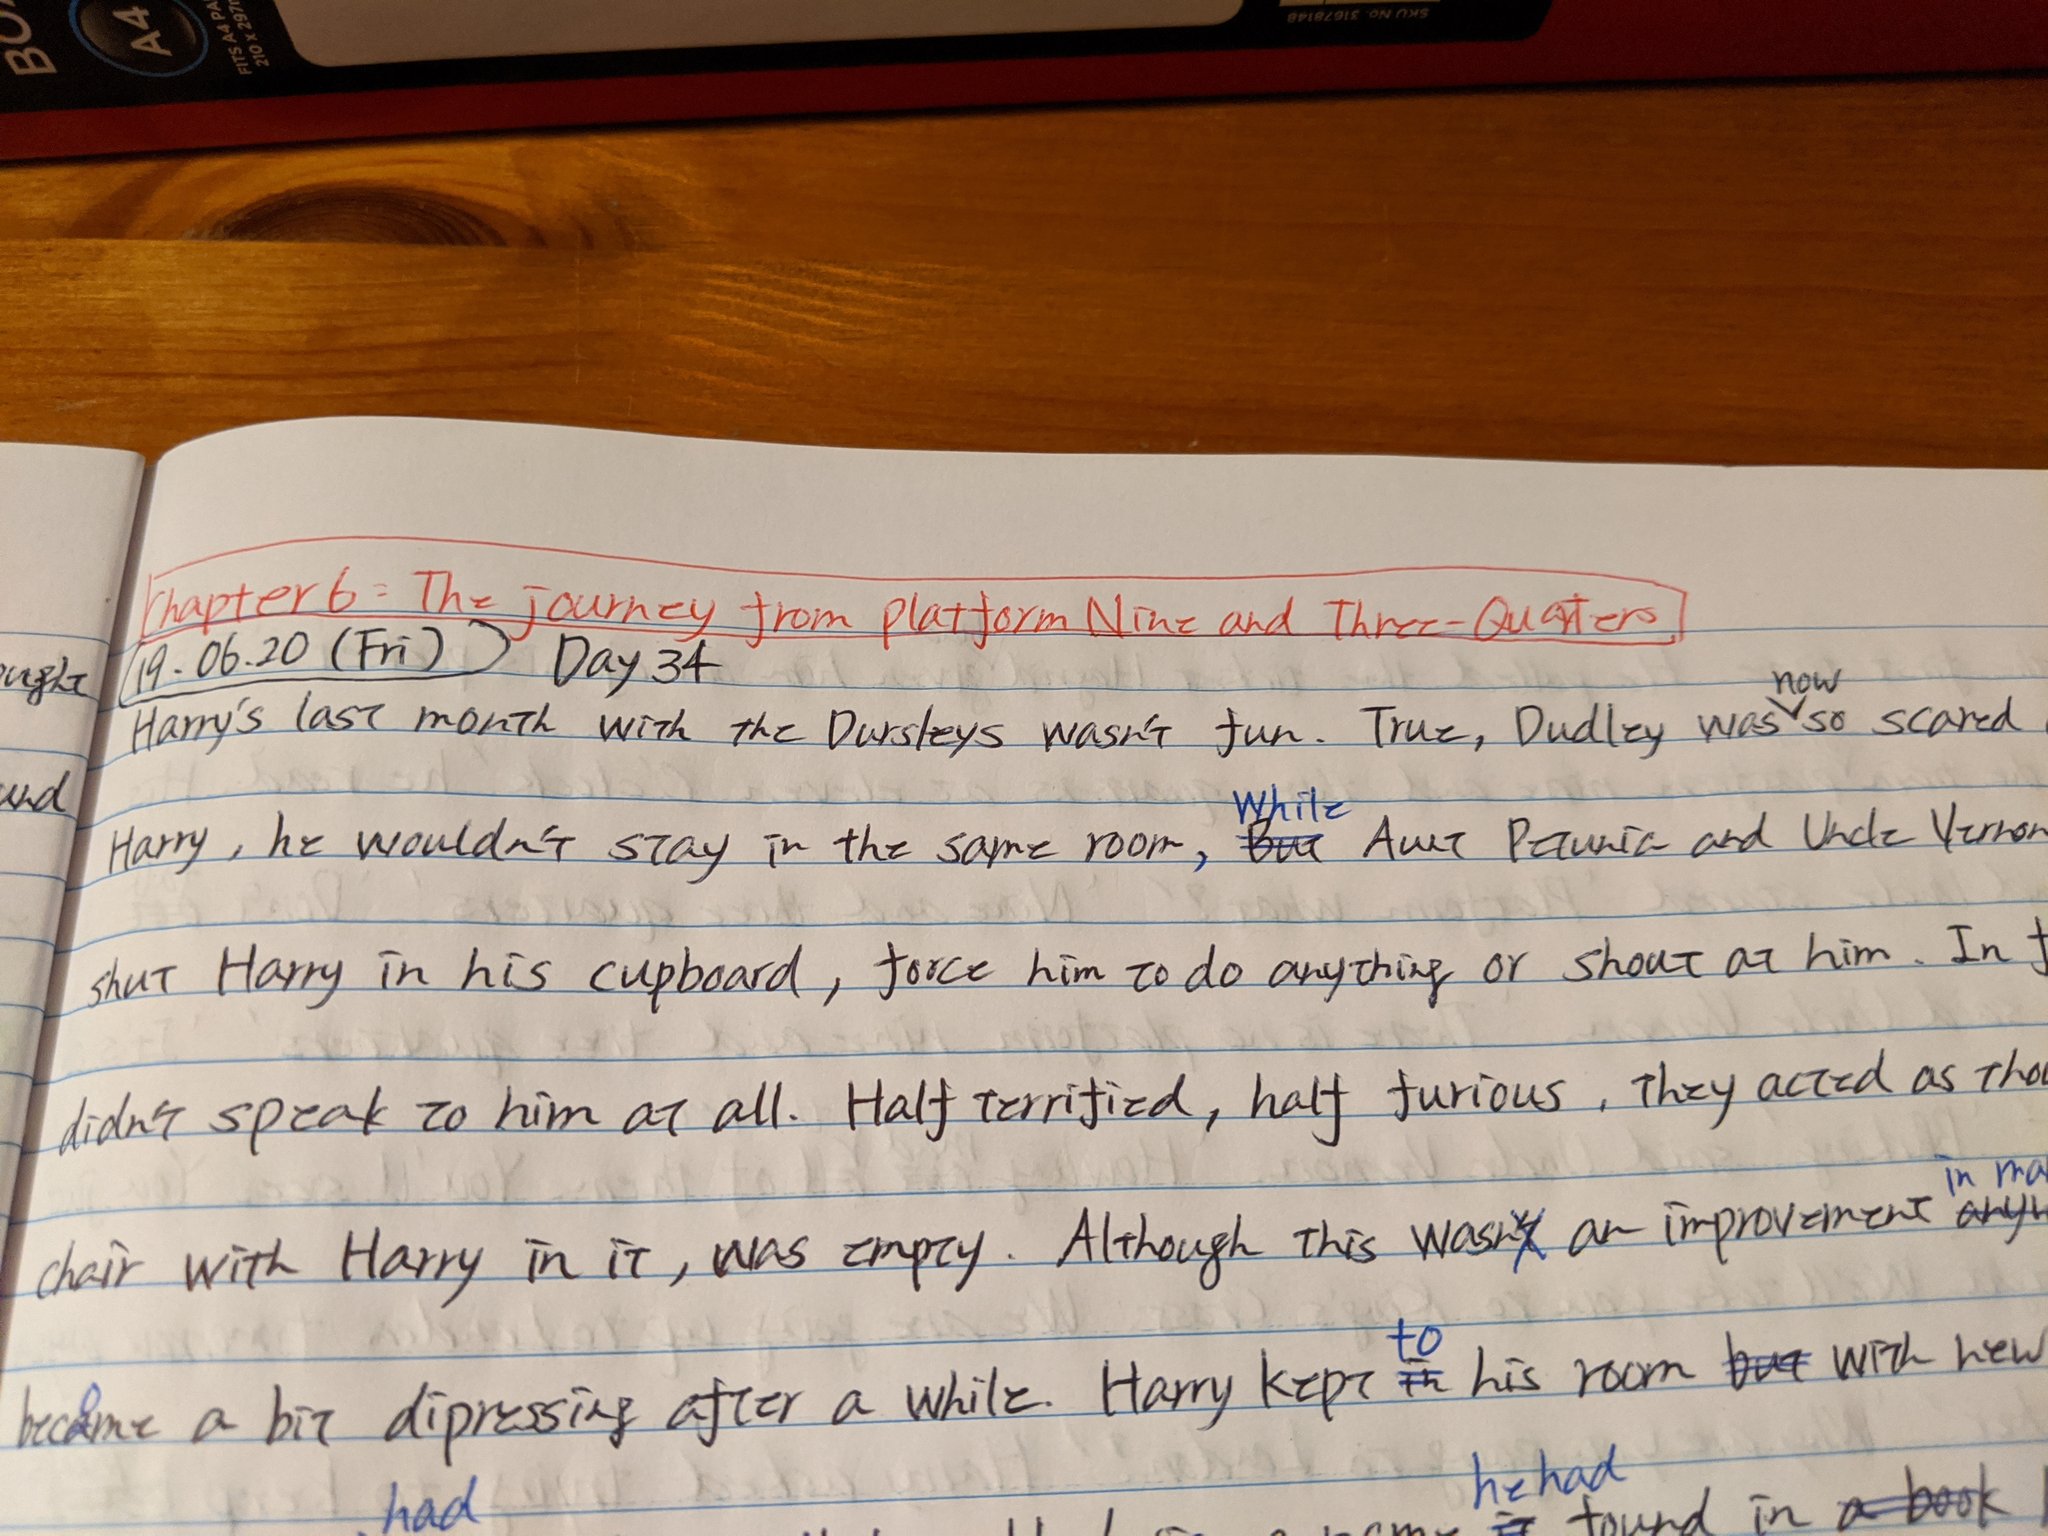 BO
A4
FITS A4 PA
210 x 297
SKU No. 31678148
Chapter 6 = The journey from Platform Nine and Three-Quarters
19.06.20 (Fri) Day 34
now
Harry's last month with the Dursleys wasn't fun. True, Dudley was so scared
While
Harry, he wouldn't stay in the same room, But Aunt Petunia and Uncle Vernon
shut Harry in his cupboard, force him to do anything or shout at him. In f
didn't speak to him at all. Half terrified, half furious, they acted as thou
in ma
chair with Harry in it, was empty. Although this wasn't an improvement anyw
to
become a bit dipressing after a while. Harry kept in his room but with new
had he had
name it found in a book
ought
und